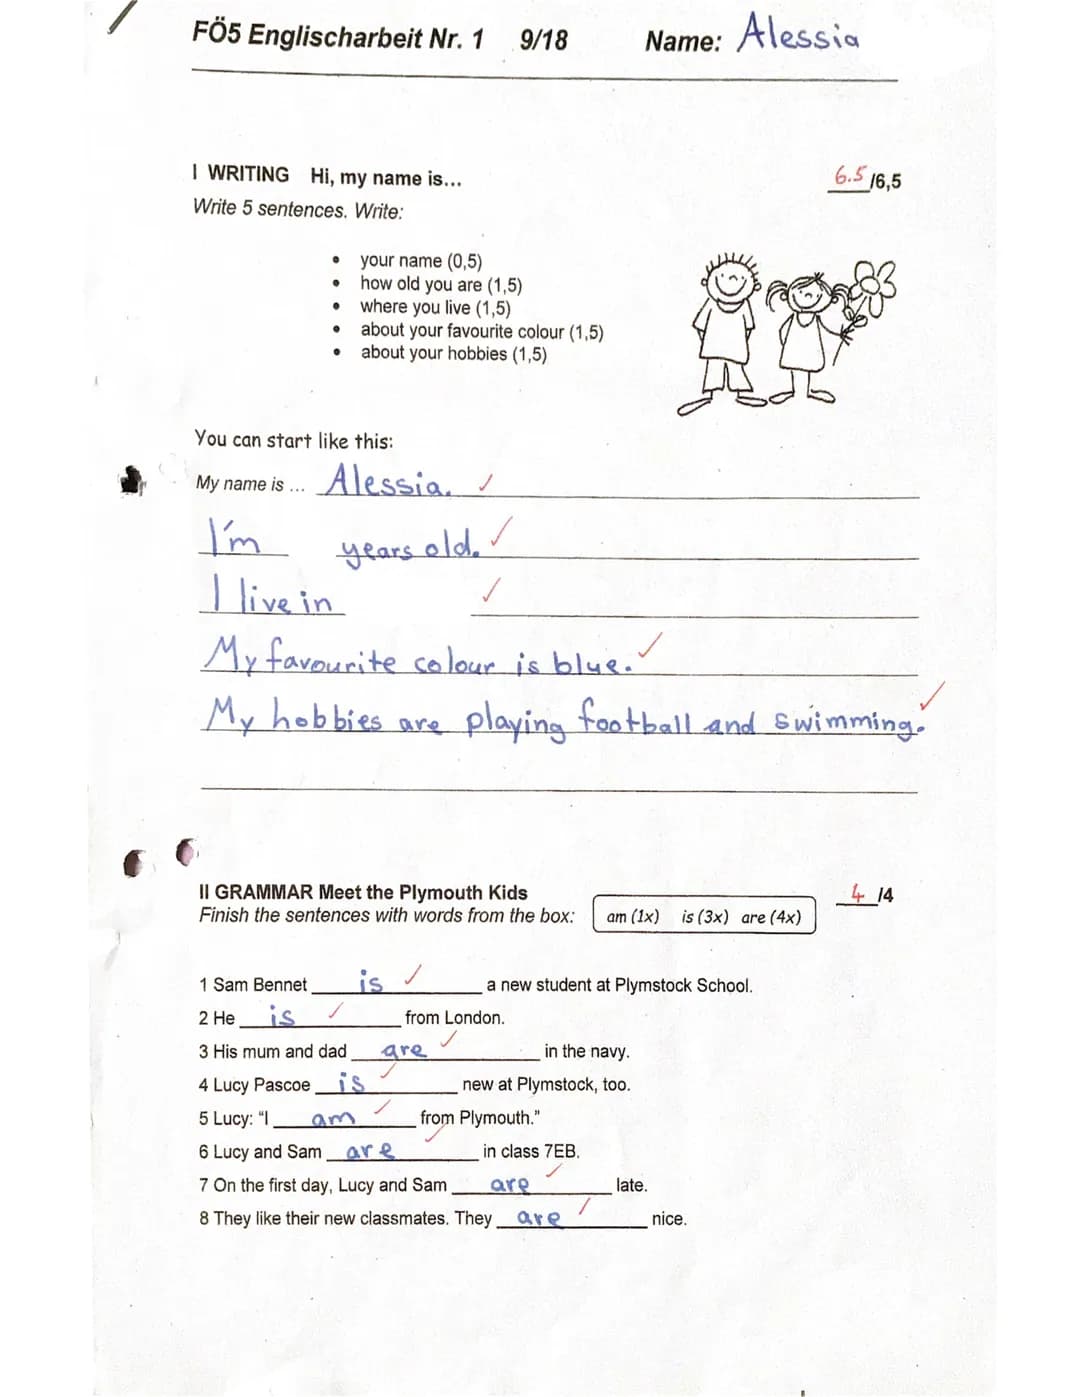 FÖ5 Englischarbeit Nr. 1 9/18 Name: Alessia
I WRITING Hi, my name is... 6.5/6,5
Write 5 sentences. Write:
• your name (0,5)
• how old you are (1,5)
• where you live (1,5)
• about your favourite colour (1,5)
• about your hobbies (1,5)
You can start like this:
My name is ... Alessia.
I'm years old.
I live in
My favourite colour is blue.
My hobbies are playing football and swimming.
II GRAMMAR Meet the Plymouth Kids 4/4
Finish the sentences with words from the box: am (1x) is (3x) are (4x)
1 Sam Bennet is a new student at Plymstock School.
2 He is from London.
3 His mum and dad are in the navy.
4 Lucy Pascoe is new at Plymstock, too.
5 Lucy: "I am from Plymouth."
6 Lucy and Sam are in class 7EB.
7 On the first day, Lucy and Sam are late.
8 They like their new classmates. They are nice.